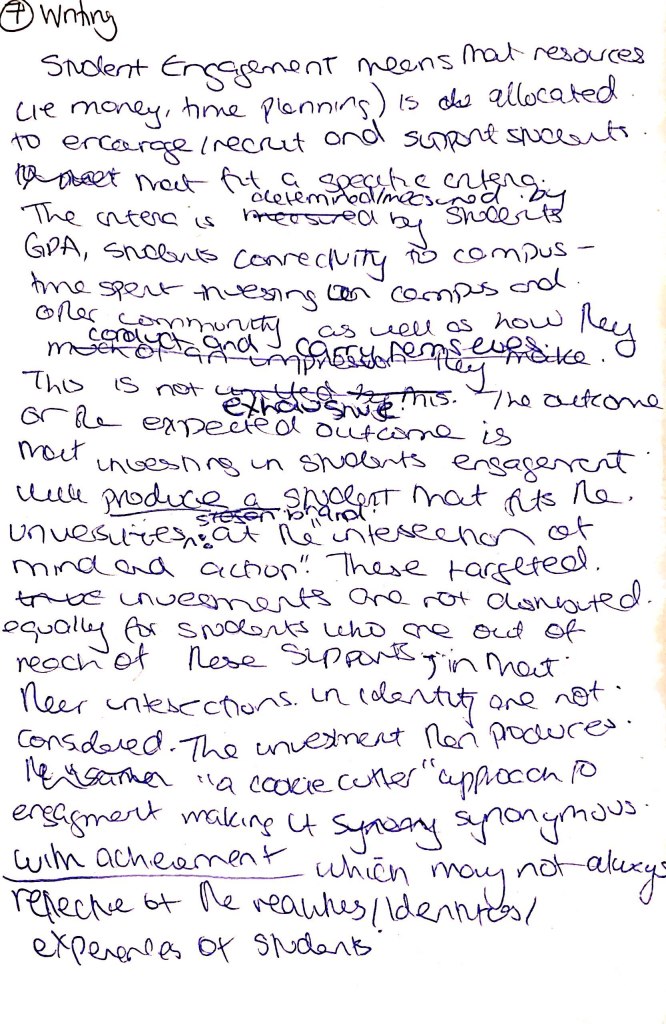 7 Writing
Student Engagement means that resources
(ie money, time planning) is allocated
to encarge/recruit and support students
that fit a specific critera.
determined/measured by
The critera is measured by Students
GPA, students connectivity to campus -
time spent investing on campus and
other community as well as how they
conduct and carry themselves.
much of an impression they make.
This is not limited to this. The outcome
exhaustive
or the expected outcome is
that investing in students engagement
will produce a student that fits the
brand:
universities: at the "intersection of
mind and action". These targeted
investments are not distributed
equally for students who are out of
reach of these supports, in that
their intersections in identity are not
considered. The investment then produces
"a cookie cutter" approach to
engagment making it synonymous
with achievement which may not always
reflective of the realities/Identities/
experiences of students